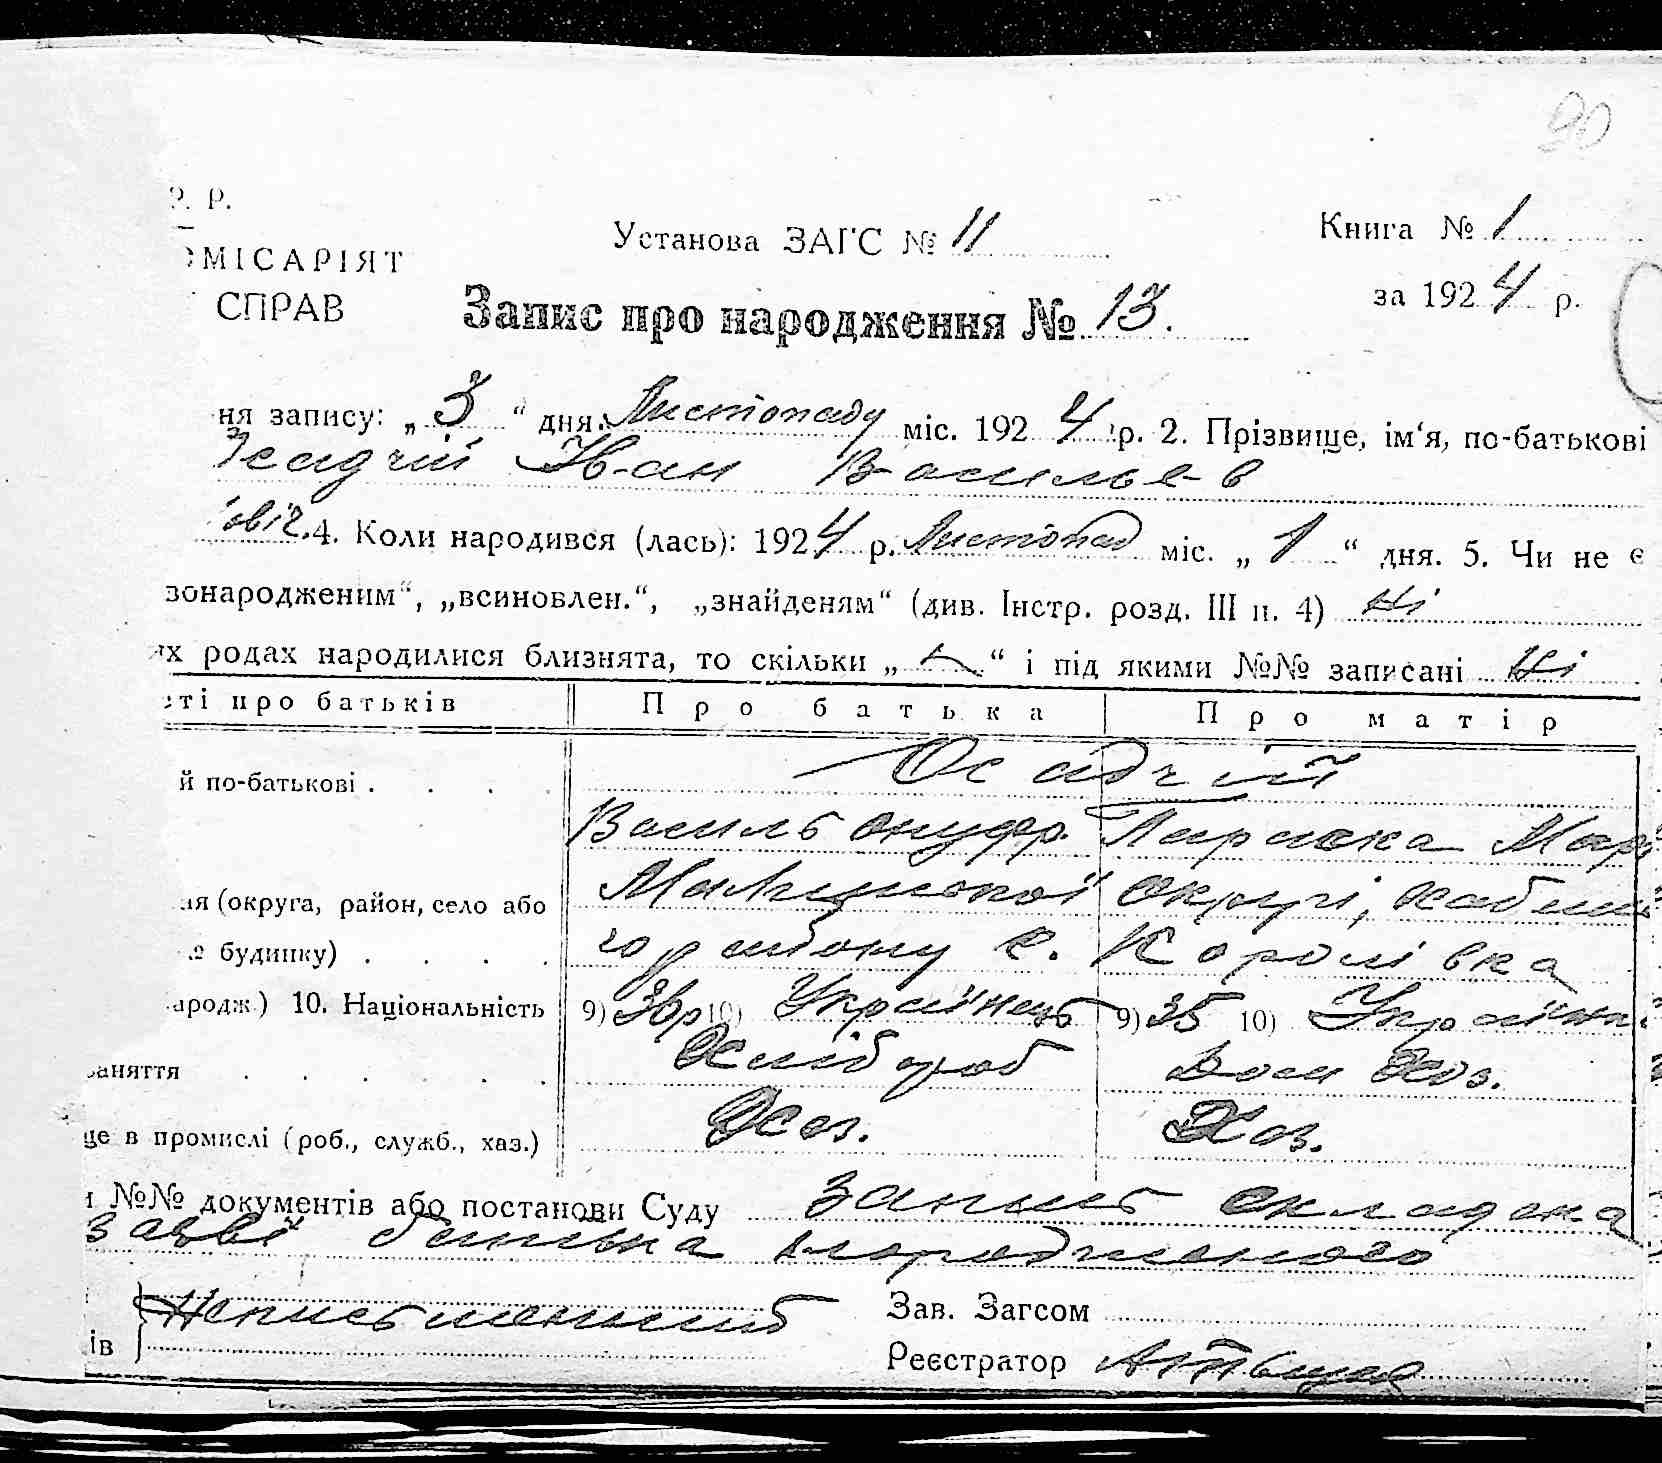 90
Р. Р.
ОМІСАРІЯТ
СПРАВ
Установа ЗАГС № 11
Книга № 1
за 1924 р.
Запис про народження № 13.
ня запису: „ 3 “ дня Листопаду міс. 1924 р. 2. Прізвище, ім‘я, по-батькові
Осадчій Іван Васильев
овіч. 4. Коли народився (лась): 1924 р. Листопад міс. „ 1 “ дня. 5. Чи не є
вонародженим“, „всиновлен.“, „знайденям“ (див. Інстр. розд. III п. 4) Ні
их родах народилися близнята, то скільки „ “ і під якими №№ записані Ні
сті про батьків Про батька Про матір
й по-батькові . . . . Осадчій
Василь Онуфр. Параска Мар
ия (округа, район, село або Округі,
№ будинку) . . . . району с. Королівка
ародж.) 10. Національність 9) 36 р 10) Українець 9) 35 10) Україн
заняття . . . . . Хлібороб Дом Хоз.
це в промислі (роб., служб., хаз.) Хоз. Хоз.
і №№ документів або постанови Суду Запись складена
заяві батька народженого
Неписьменний Зав. Загсом
ів Реєстратор